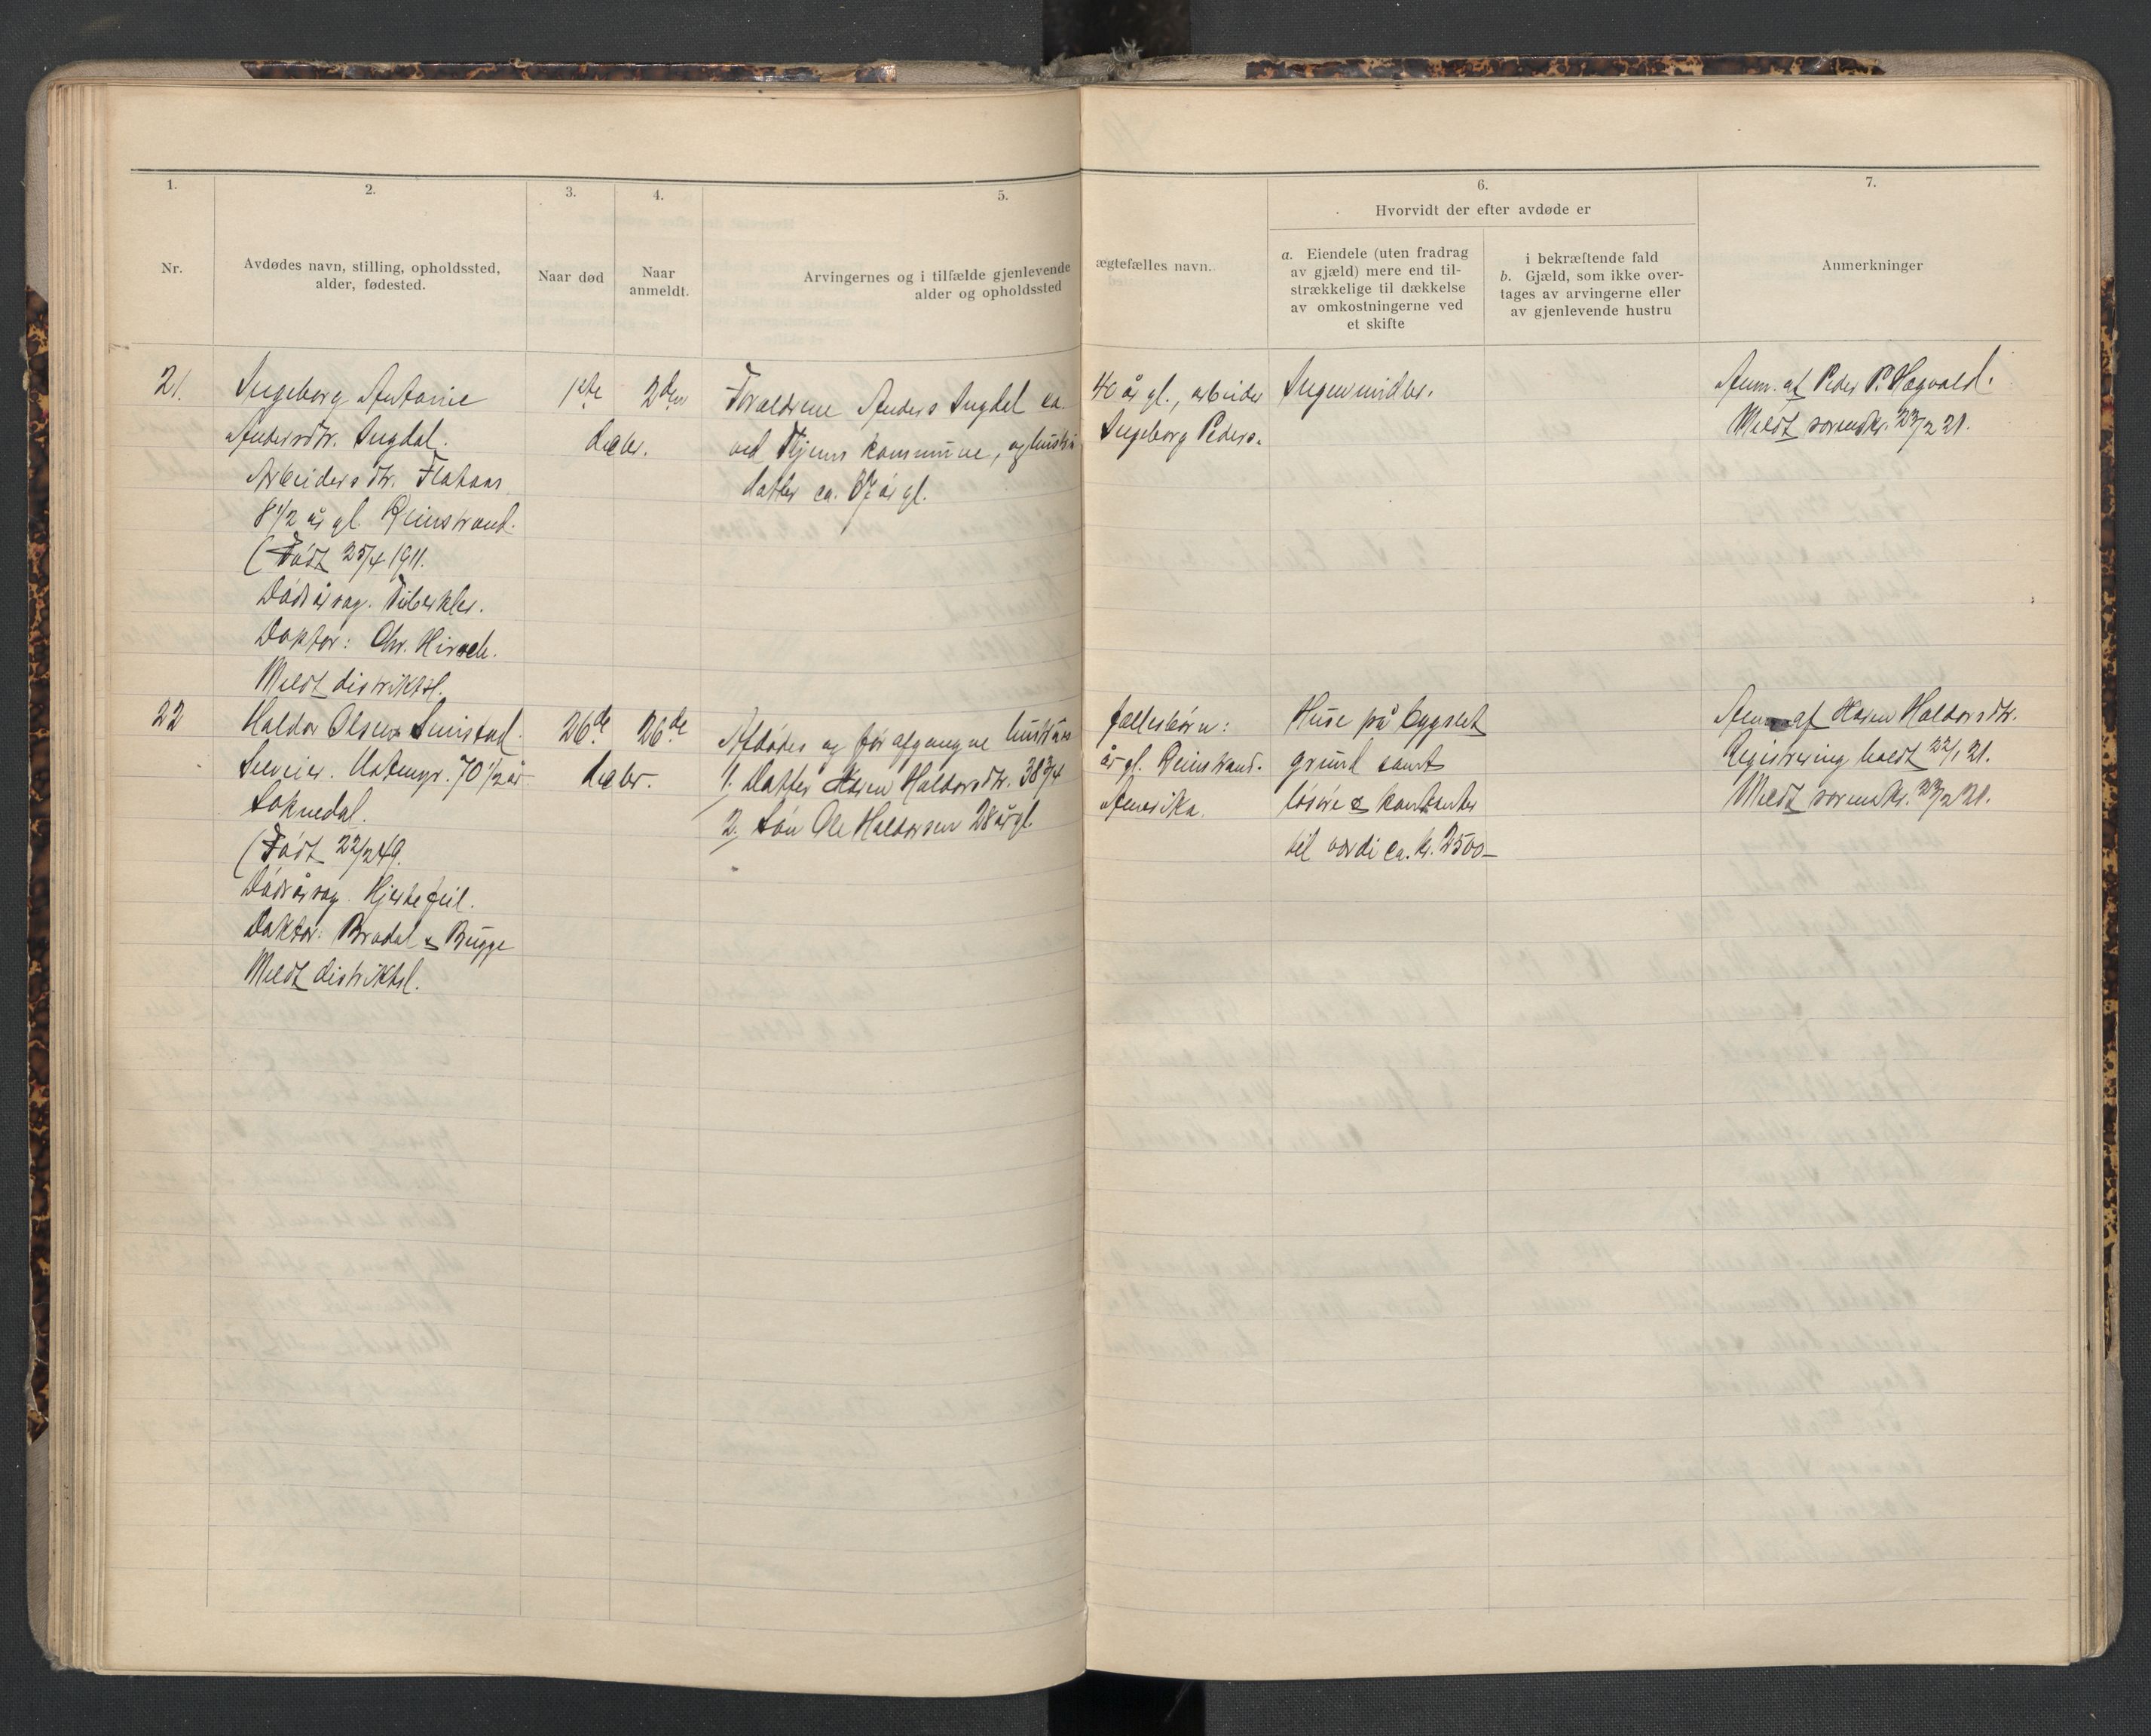 1.
2.
3.
4.
5.
6.
7.
Nr.
Avdødes navn, stilling, opholdssted,
alder, fødested.
Naar død
Naar
anmeldt.
Arvingernes og i tilfælde gjenlevende ægtefælles navn.
alder og opholdssted
Hvorvidt der efter avdøde er
a. Eiendele (uten fradrag
av gjæld) mere end til-
strækkelige til dækkelse
av omkostningerne ved
et skifte
i bekræftende fald
b. Gjæld, som ikke over-
tages av arvingerne eller
av gjenlevende hustru
Anmerkninger
21.
Ingeborg Antonie
Andersdtr. Ingdal.
Arbeidersdtr.
8 1/2 år gl. Reinstrand.
(Født 25/4 1911.
Dødsårsag. Tuberkler.
Doktor: Chr. Hirsch.
Meldt distriktsl.
1ste
decbr.
2den
Forældrene Anders Ingdal ca. 40 år gl., arbeider
ved kommune, og hustru Ingeborg Peders-
datter ca. 37 år gl.
Ingen midler.
Anm. af Peder P.
Meldt sorenskr. 23/2 21.
22
Haldor Olsen
Selveier. Ustengr. 70 1/2 år
Soknedal.
(Født 22/2 49.
Dødsårsag. Hjertefeil.
Doktor: Bradal & Bugge
Meldt distriktsl.
26de
decbr.
26de
Afdødes og før afgangne hustrues fællesbørn:
1. Datter Karen Haldorsdtr. 38 3/4 år gl. Reinstrand.
2. Søn Ole Haldorsen 28 år gl. Amerika.
Huse på bygslet
grund samt
løsøre & kontanter
til værdi ca. kr. 2500—
Anm. af Karen Haldorsdtr.
Registrering holdt 22/1 21.
Meldt sorenskr. 23/2 21.